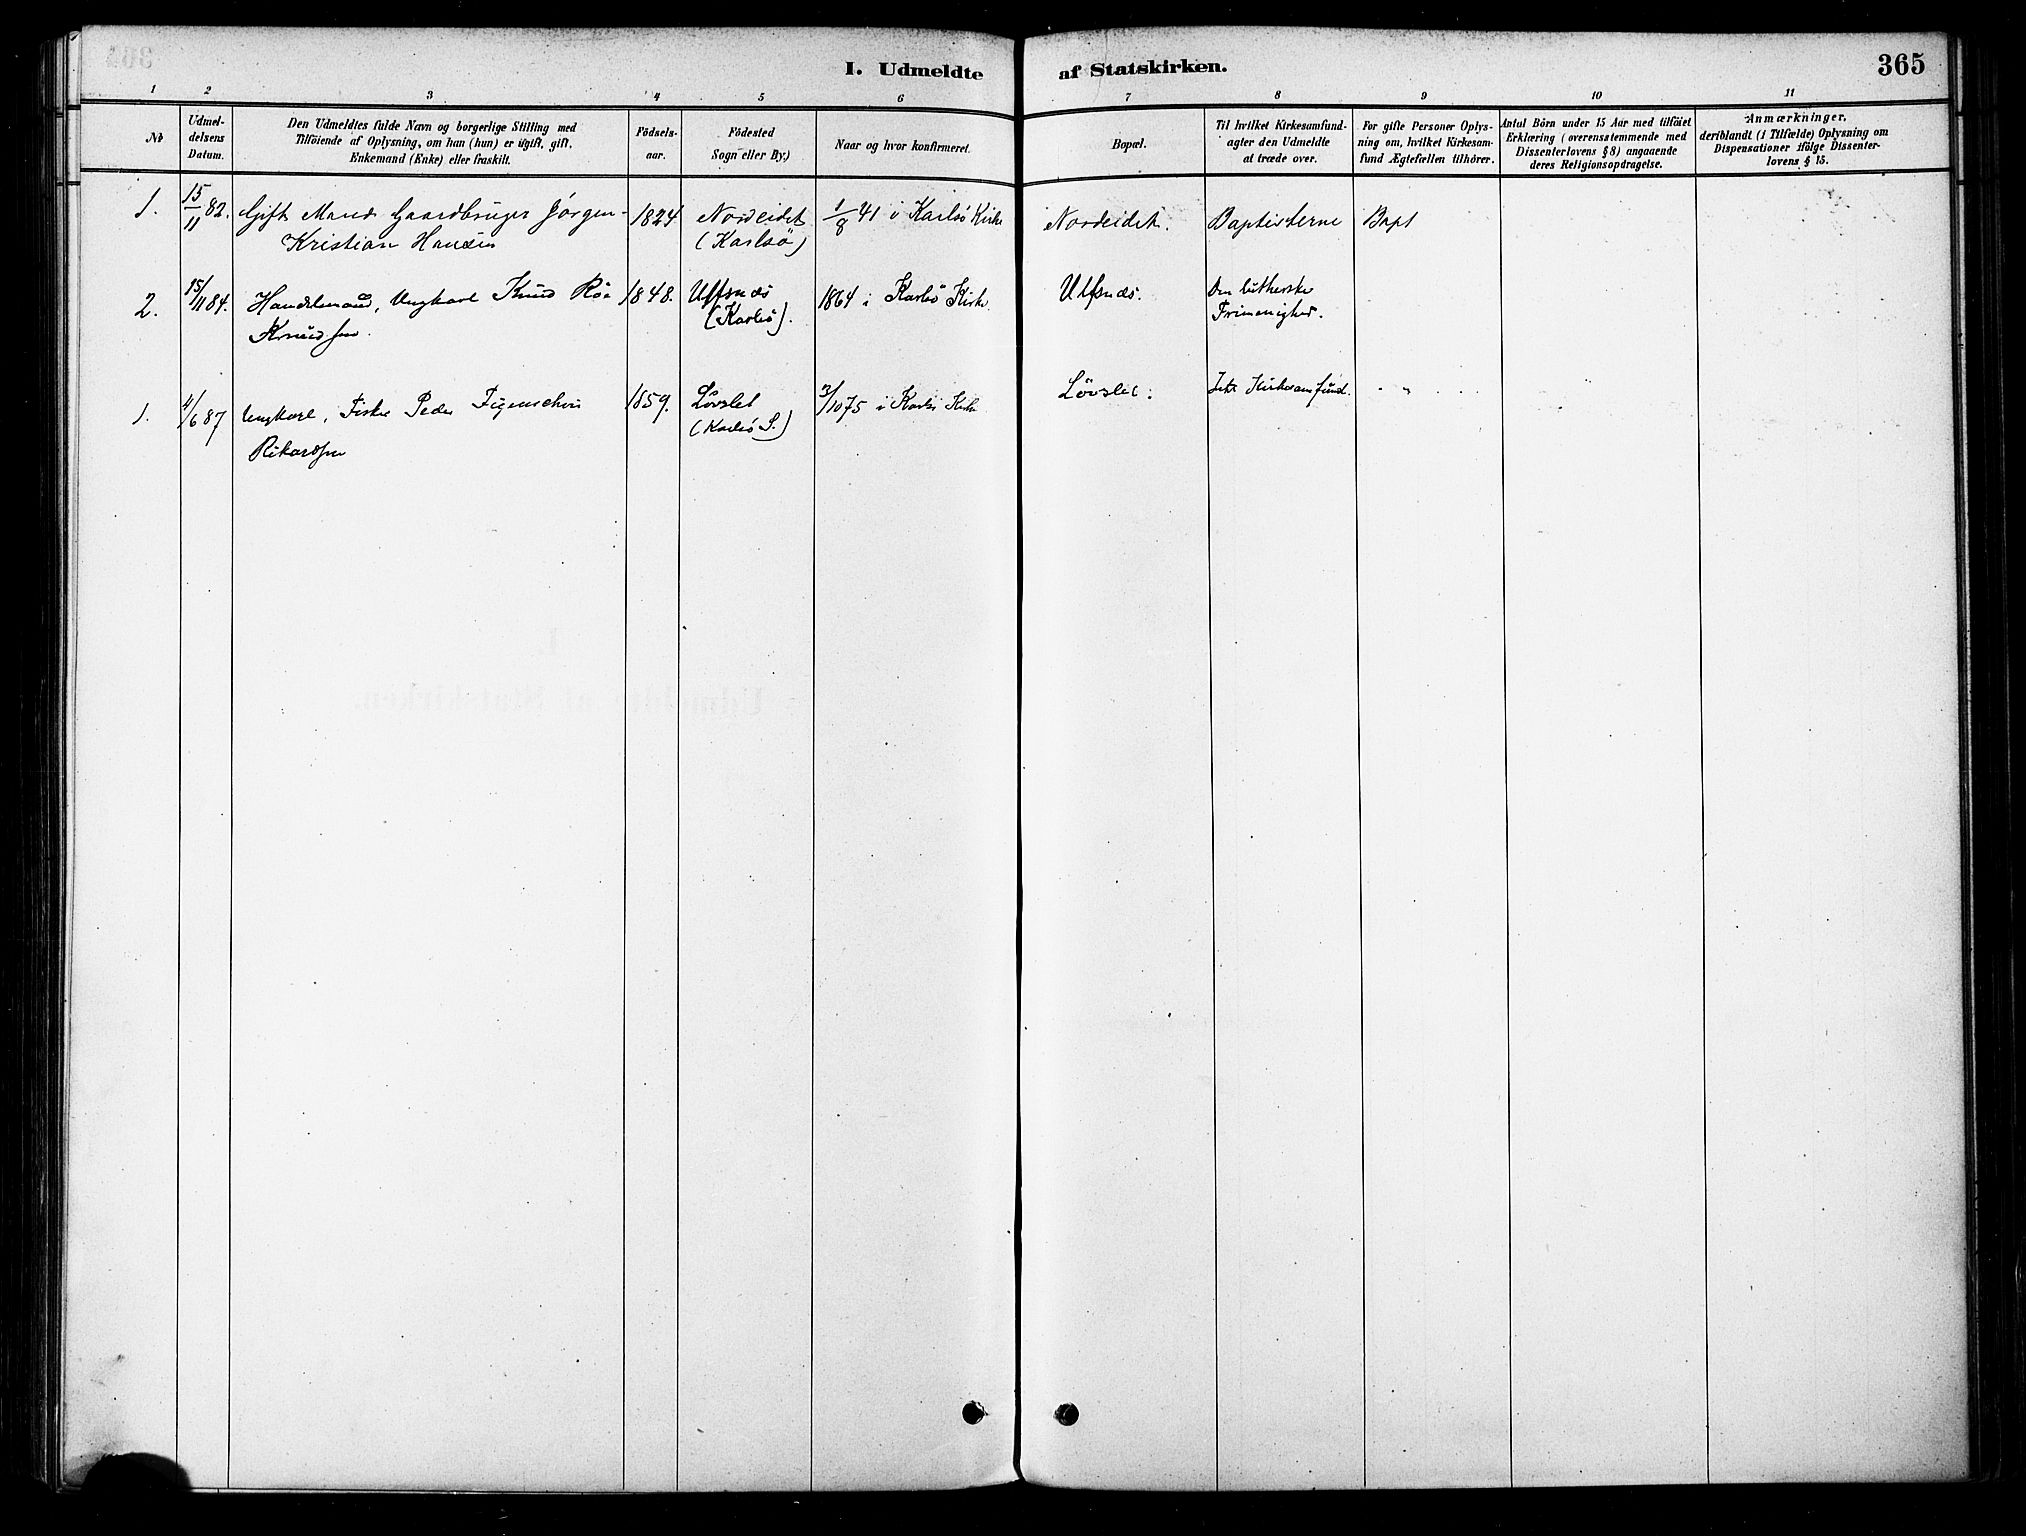 I. Udmeldte af Statskirken. 365
1 2 3 4 5 6 7 8 9 10 11
№
Udmel-
delsens
Datum.
Den Udmeldtes fulde Navn og borgerlige Stilling med
Tilföiende af Oplysning, om han (hun) er ugift, gift,
Enkemand (Enke) eller fraskilt.
Födsels-
aar.
Födested
Sogn eller By.)
Naar og hvor konfirmeret.
Bopæl.
Til hvilket Kirkesamfund-
agter den Udmeldte
at træde over.
For gifte Personer Oplys-
ning om, hvilket Kirkesam-
fund Ægtefællen tilhörer.
Antal Börn under 15 Aar med tilföiet
Erklæring (overensstemmende med
Dissenterlovens § 8) angaaende
deres Religionsopdragelse.
Anmærkninger,
deriblandt (i Tilfælde) Oplysning om
Dispensationer ifölge Dissenter-
lovens § 15.
1. 15/11 82. Gift Mand Gaardbruger Jörgen 1824 Nordeidet 1/8 41 i Karlsö Kirke Nordeidet. Baptisterne Bapt
Kristian Hansen (Karlsö)
2. 15/11 84. Handelsmand, Ungkarl Knud Röe 1848. Ulfsnæs 1864 i Karlsö Kirke Ulfsnæs. Den lutherske
Knudsen. (Karlsö). Frimenighed.
1. 4/6 87 Ungkarl, Fisker Peder Figenschou 1859. Lövslet 3/10 75 i Karlsö Kirke Lövslet. Intet Kirkesamfund. " 
Rikardsen (Karlsö S.)